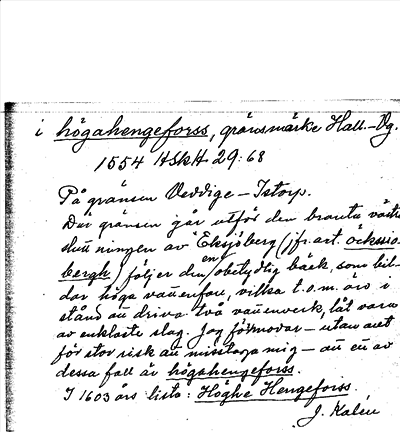 i högahengeforss, gränsmärke Hall.-Vg.
1554 HSkH 29:68
På gränsen Veddige – Istorp.
Där gränsen går utför den branta västra
sluttningen av Eksjöberg (jfr art. öckssio
bergh) följer den en obetydlig bäck, som bil-
dar höga vattenfall, vilka t.o.m. äro i
stånd att driva två vattenverk, låt vara
av enklaste slag. Jag förmodar – utan allt
för stor risk att misstaga mig – att en av
dessa fall är högahengeforss.
I 1603 års lista: Höghe Hengeforss.
J. Kalén